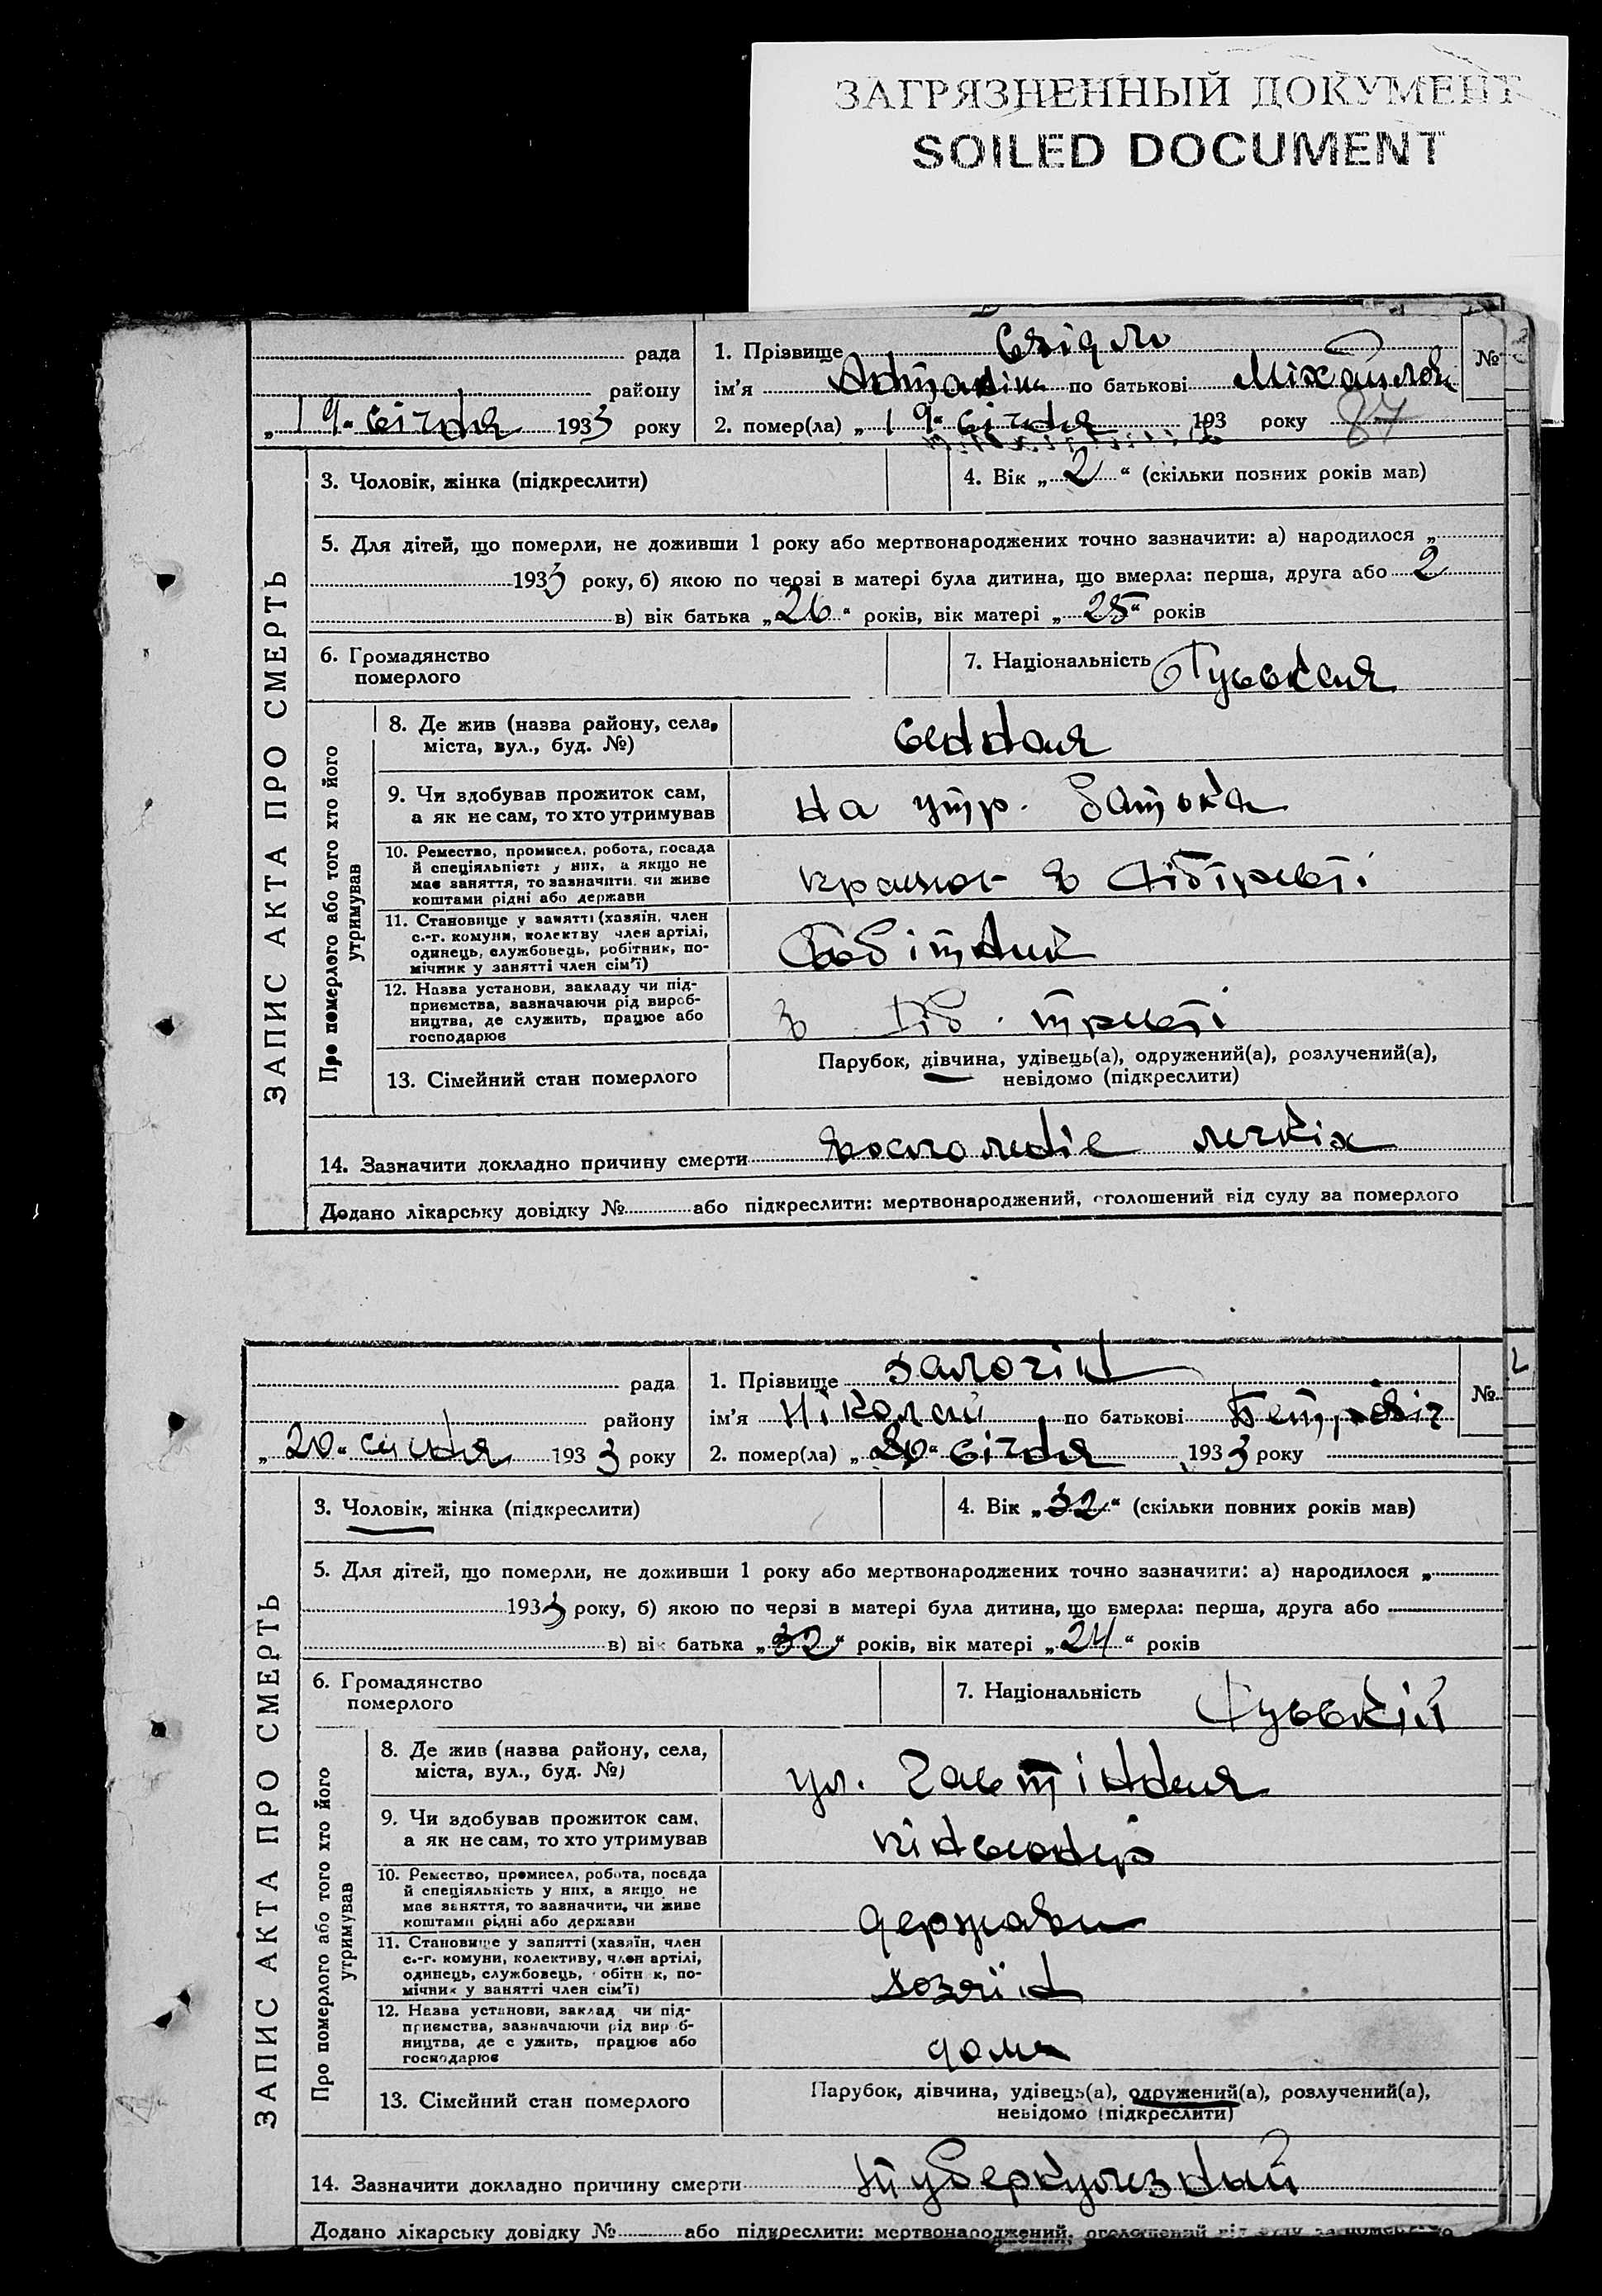 ЗАГРЯЗНЕННЫЙ ДОКУМЕНТ
SOILED DOCUMENT
рада
району
„19“ січня 1933 року
1. Прізвище
ім'я по батькові
2. помер(ла) „19“ січня 193 року 87
№
ЗАПИС АКТА ПРО СМЕРТЬ
3. Чоловік, жінка (підкреслити)
4. Вік „2“ (скільки повних років мав)
5. Для дітей, що померли, не доживши 1 року або мертвонароджених точно зазначити: а) народилося „
1933 року, б) якою по черзі в матері була дитина, що вмерла: перша, друга або 2
в) вік батька „26“ років, вік матері „25“ років
6. Громадянство
померлого
7. Національність Руськая
Про померлого або того хто його
утримував
8. Де жив (назва району, села,
міста, вул., буд. №)
Сенная
9. Чи здобував прожиток сам,
а як не сам, то хто утримував
на утр. батька
10. Ремество, промисел, робота, посада
й спеціяльність у них, а якщо не
має заняття, то зазначити, чи живе
коштами рідні або держави
11. Становище у занятті (хазяїн, член
с.-г. комуни, колективу член артілі,
одинець, службовець, робітник, по-
мічник у занятті член сім'ї)
Робітник
12. Назва установи, закладу чи під-
приємства, зазначаючи рід вироб-
ництва, де служить, працює або
господарює
13. Сімейний стан померлого
Парубок, дівчина, удівець(а), одружений(а), розлучений(а),
невідомо (підкреслити)
14. Зазначити докладно причину смерти легкіх
Додано лікарську довідку № або підкреслити: мертвонароджений, оголошений від суду за померлого
рада
району
„20“ січня 1933 року
1. Прізвище
ім'я Ніколай по батькові Петровіч
2. помер(ла) „20“ січня 1933 року
№
ЗАПИС АКТА ПРО СМЕРТЬ
3. Чоловік, жінка (підкреслити)
4. Вік „32“ (скільки повних років мав)
5. Для дітей, що померли, не доживши 1 року або мертвонароджених точно зазначити: а) народилося „
1933 року, б) якою по черзі в матері була дитина, що вмерла: перша, друга або
в) вік батька „32“ років, вік матері „24“ років
6. Громадянство
померлого
7. Національність Руський
Про померлого або того хто його
утримував
8. Де жив (назва району, села,
міста, вул., буд. №)
ул.
9. Чи здобував прожиток сам,
а як не сам, то хто утримував
пінсіонер
10. Ремество, промисел, робота, посада
й спеціяльність у них, а якщо не
має заняття, то зазначити, чи живе
коштами рідні або держави
держави
11. Становище у занятті (хазяїн, член
с.-г. комуни, колективу, член артілі,
одинець, службовець, робітник, по-
мічник у занятті член сім'ї)
хозяїн
12. Назва установи, заклад чи під-
приємства, зазначаючи рід вироб-
ництва, де служить, працює або
господарює
дома
13. Сімейний стан померлого
Парубок, дівчина, удівець(а), одружений(а), розлучений(а),
невідомо (підкреслити)
14. Зазначити докладно причину смерти туберкулезный
Додано лікарську довідку № або підкреслити: мертвонароджений, оголошений від суду за померлого